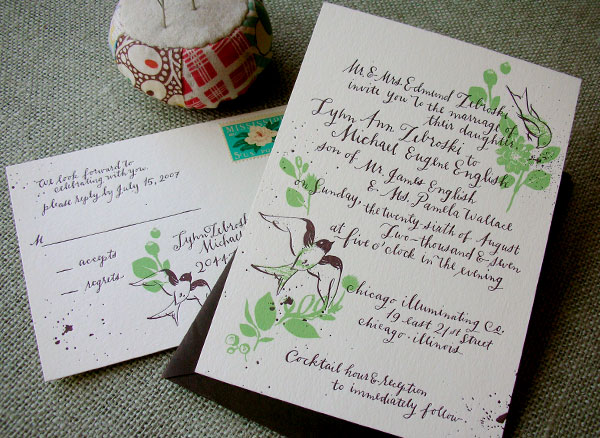 Mr. & Mrs. Edmund Zebroski
invite you to the marriage of
their daughter
Lynn Ann Zebroski to
Michael Eugene English
son of Mr. James English
& Ms. Pamela Wallace
on Sunday, the twenty-sixth of August
Two-thousand & seven
at five o'clock in the evening
chicago illuminating co.
19 east 21st street
chicago. illinois.
Cocktail hour & reception
to immediately follow.
We look forward to
celebrating with you.
please reply by July 15, 2007
M
accepts
regrets
Lynn Zebroski
Michael